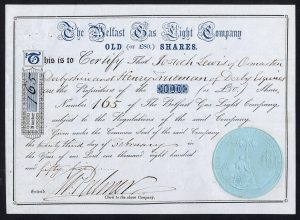 The Belfast Gas Light Company
OLD (or £80.) SHARES.
This is to Certify That Josiah Lewis of
Derbyshire and Henry Freeman of Derby Esquires
are the Proprietors of the OLD (or £80) Share,
Number 165 of The Belfast Gas Light Company,
subject to the Regulations of the said Company.
Given under the Common Seal of the said Company
the twenty third day of February in the
Year of our Lord one thousand eight hundred
and fifty
Clerk to the above Company.
165